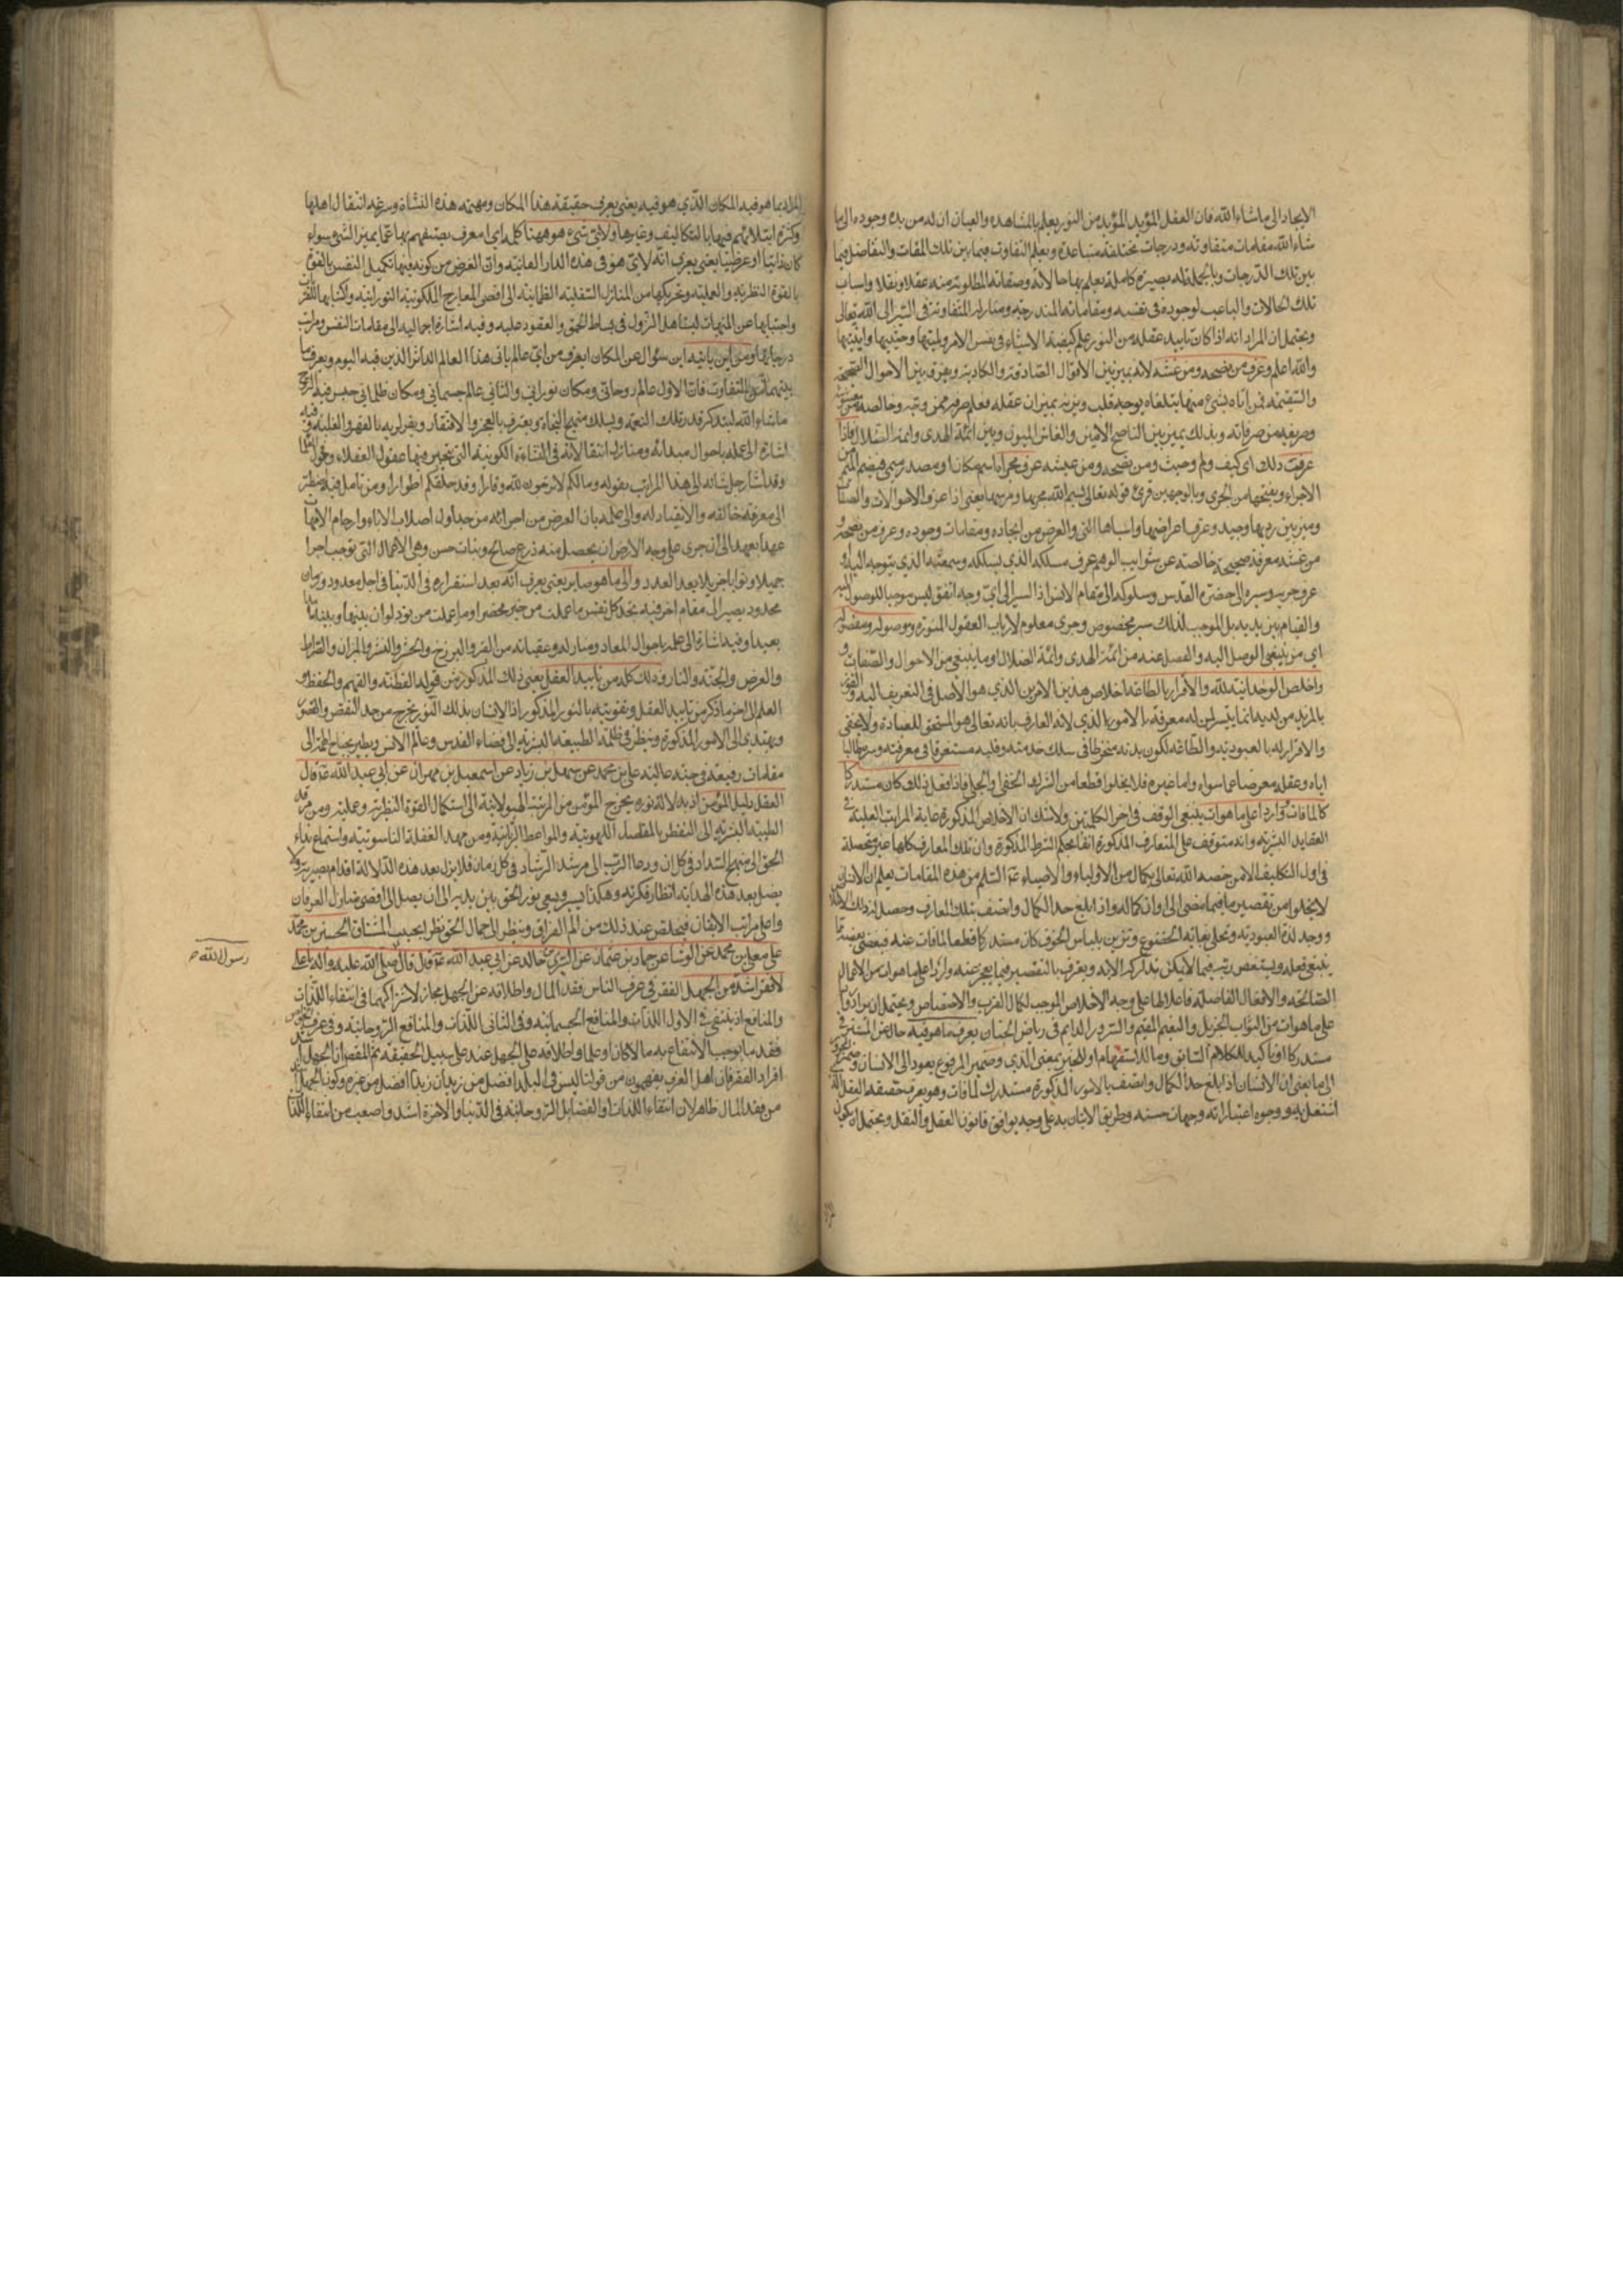 الايجاد الى ما شاء الله فان العقل المؤيد من النور يعلم بالمشاهدة والعيان ان له من بدء وجوده الى ما
شاء الله مقامات متفاوتة ودرجات مختلفة متباعدة ويعلم التفاوت فيما بين تلك المقامات والتفاضل فيما
بين تلك الدرجات وبالجملة له بصيرة كاملة يعلم بها حالاته وصفاته المطلوبة منه عقلا ونقلا واسباب
تلك الحالات والباعث لوجوده في نفسه ومقاماته المندرجة ومنازله المتفاوتة في السير الى الله تعالى
ويحتمل ان المراد انه اذا كان تاييد عقله من النور علم كيفية الاشياء في نفس الامر ولميتها وحيثيتها واينيتها
والله اعلم وعرف من نصحه ومن غشه لانه يميز بين الاقوال الصادقة والكاذبة ويعرف بين الاحوال الصحيحة
والسقيمة فمن اتاه بشيء منها يتلقاه بوجه قلبه ويزنه بميزان عقله فيعلم
وبذلك يميز بين الناصح الامين والغاش وبين ائمة الهدى وائمة الضلال فاذا
عرف ذلك اي كيف ولم وحيث ومن نصحه ومن غشه عرف مجراه اسم مكان او مصدر ميمي بضم الميم من
الاجراء وبفتحها من الجري وبالوجهين قرئ قوله تعالى بسم الله مجريها ومرسيها يعني اذا عرف الاحوالات والصفات
وميز بين وجيده وعرف اعراضها واسبابها التي والغرض من ايجاده ومقامات وجوده وعرف من نصحه و
من غشه معرفة صحيحة خالصة عن شوايب الوهم عرف مسلكه الذي يسلكه وسمته الذي يتوجه اليه في
عروجه وسيره الى حضرة القدس وسلوكه الى مقام الانس اذ السير الى اي وجه اتفق ليس موجبا للوصول اليه
والقيام بين يديه بل الموجب لذلك سير مخصوص وجرى معلوم لارباب العقول المنورة وموصوله ومفصوله
اي من ينبغي الوصل اليه والفصل عنه من ائمة الهدى وائمة الضلال او ما ينبغي من الاحوال والصفات و
واخلص الوحدانية لله والاقرار بالطاعة اخلاص هذين الامرين الذي هو الاصل في التعريف اليه و
بالمزيد من لديه انما يتيسر لمن له معرفة بالامور لانه العارف بانه تعالى هو المستحق للعبادة ولا يخفى
والاقرار له بالعبودية والطاعة لكون بدنه منخرطا في سلك خدمته وقلبه مستغرقا في معرفته وسره طالبا
اياه وعقله معرضا عما سواه واما غيره فلا يخلو قطعا من الشرك الخفي والجلي فاذا فعل ذلك كان مستدركا
لما فات وواردا على ما هو ات ينبغي الوقف في اخر الكلمتين ولا شك ان الاخلاص المذكور غاية المراتب العلية في
العقايد البشرية وانه متوقف على المتعارف المذكورة انفا بحكم الشرط المذكورة وان تلك المعارف كلها غير محصلة
في اول التكليف الا لمن خصه الله تعالى بكمال من الاولياء والاوصياء ثم من هذه المقامات يعلم ان الانسان
لا يخلو من تقصير ما فيما مضى الى اوان كماله واذا بلغ حد الكمال واتصف بتلك المعارف وحصل له ذلك الاخلاص
ووجد لذة العبودية وتحلى بغاية الخضوع وتزين بلباس الخوف كان مستدركا قطعا لما فات عنه
الصالحة والافعال الفاضلة فاعلا لها على وجه الاخلاص الموجب لكمال القرب والاختصاص ويحتمل ان يراد
على ما هو ات من الثواب الجزيل والنعيم المقيم والسرور الدايم في رياض الجنان يعرف ما هو فيه حال عن المستتر في
مستدركا او تاكيد للكلام السابق وما للاستفهام او للخبر بمعنى الذي وضمير المرفوع يعود الى الانسان وضمير المجرور
الى ما يعني ان الانسان اذا بلغ حد الكمال واتصف بالامور المذكورة مستدرك لما فات وهو يعرف حقيقة العقل الذي
اشتغل به ووجوه اعتباراته وجهات حسنه وطريق الاتيان به على وجه يوافق قانون العقل والنقل ويحتمل ان يكون
المراد بما هو فيه المكان الذي هو فيه يعني يعرف حقيقة هذا المكان ومهية هذه النشاة وسرعة انتقال اهلها
وكثرة ابتلائهم فيها بالتكاليف وغيرها ولاي شيء هو ههنا كلمة اي معرف يستفهم بها عما يميز الشيء سواء
كان ذاتيا او عرضيا يعني يعرف انه لاي هو في هذه الدار الفانية وان الغرض من كونه فيها تكميل النفس
بالقوة النظرية والعملية وتحريكها من المنازل السفلية الظلمانية الى اقصى المعارج الملكوتية النورانية واكتسابها
واجتنابها عن المنهيات ليتاهل النزول في بساط الحق والعقود عليه وفيه اشارة اجمالية الى مقامات النفس ومراتب
درجاتها ومن اين ياتيه اين سؤال عن المكان اي يعرف من اي عالم ياتي هذا العالم الداثر الذي فيه اليوم ويعرف ما
بينهما من التفاوت فان الاول عالم روحاني ومكان نوراني والثاني عالم جسماني ومكان ظلماني حبس فيه الروح
ما شاء الله ليتذكر قدر تلك النعمة ويسلك منهج النجاة ويعترف بالعجز والافتقار ويقر لربه بالقهر والغلبة وفيه
اشارة الى علمه باحوال مبدائه ومنازل انتقالاته في النشاءة الكونية التي يتحير فيها عقول العقلاء وفحول العلماء
وقد اشار جل شانه الى هذا المراتب بقوله وما لكم لا ترجون لله وقارا وقد خلقكم اطوارا ومن تامل فيه اضطر
الى معرفة خالقه والانقياد له والى علمه بان الغرض من اجرائه من جداول اصلاب الاباء وارحام الامهات
عهدا بعهد الى ان جرى على وجه الارض ان يحصل منه زرع صالح ونبات حسن وهي الاعمال التي توجب اجرا
جميلا وثوابا جزيلا بعد العدد والى ما هو صاير يعني يعرف انه بعد استقراره في الدنيا في اجل معدود وزمان
محدود يصير الى مقام اخر فيه تجد كل نفس ما عملت من خير محضرا وما عملت من سوء تود لو ان بينها وبينه امدا
بعيدا وفيه اشارة الى علمه باحوال المعاد ومنازله وعقباته من القبر والبرزخ والحشر والنشر والميزان والصراط
والعرض والجنة والنار وذلك كله من تاييد العقل يعني ذلك المذكور من قوله الفطنة والفهم والحفظ و
العلم الى اخر ما ذكر من تاييد العقل وتقويته بالنور المذكور اذ الانسان بذلك النور يخرج من حد النقص والقصور
ويهتدي الى الامور المذكورة وينظر في ظلمة الطبيعة البشرية الى فضاء القدس وعالم الانس ويطير بجناح الهمة الى
مقامات رفيعة في جنة عالية علي بن محمد عن سهل بن زياد عن اسمعيل بن مهران عن ابي عبد الله ع قال
العقل دليل المؤمن اذ بدلالة نوره يخرج المؤمن من المرتبة الهيولانية الى استكمال القوة النظرية وعملية ومن مرقد
الطبيعة البشرية الى التفطن بالمفصل اللاهوتية والمواعظ الربانية ومن مهد الغفلة الناسوتية واستماع نداء
الحق الى منهج السداد في كل ان ودعاء الرب الى مرشد الرشاد في كل زمان فلا يزل بعد هذه الدلالة اقدام بصيرته ولا
يضل بعد هذه الهداية انظار فكرته وهكذا يسير ويسعى بنور الحق بين يديه الى ان يصل الى اقصى منازل العرفان
واعلى مراتب الايقان فيخلص عند ذلك من الم الفراق وينظر الى جمال الحق نظر الحبيب المشتاق الحسين بن محمد
عن معلى بن محمد عن الوشاء عن حماد بن عثمان عن السري بن خالد عن ابي عبد الله ع قال قال صلى الله عليه واله يا علي
رسول الله ص
لا فقر اشد من الجهل الفقر في عرف الناس فقد المال واطلاقه عن الجهل مجاز لاشتراكهما في انتفاء اللذات
والمنافع اذ ينتفي في الاول اللذات والمنافع الجسمانية وفي الثاني اللذات والمنافع الروحانية وفي عرف
فقد ما يوجب الانتفاع به مالا كان او علما واطلاقه على الجهل عند على سبيل الحقيقة ثم المقصود ان الجهل اشد
افراد الفقر فان اهل العرف يفهمون من قولنا ليس في البلد افضل من زيد ان زيدا افضل من غيره وكون الجهل
من فقد المال ظاهر لان انتفاء اللذات والفضايل الروحانية في الدنيا والاخرة اشد واصعب من انتفاء اللذات